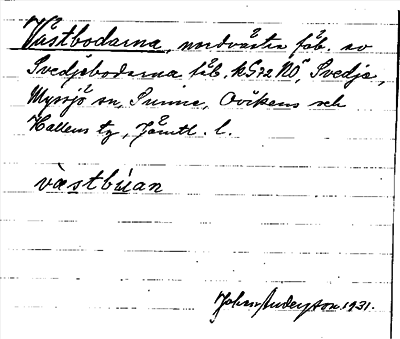 Västbodarna, nordvästra fäb. av
Svedjebodarna fäb, k G72 NO, Svedje,
Myssjö sn, Sunne, Ovikens och
Hallens tg, Jämtl. l.
væstbúan
Johan Anderson 1931.